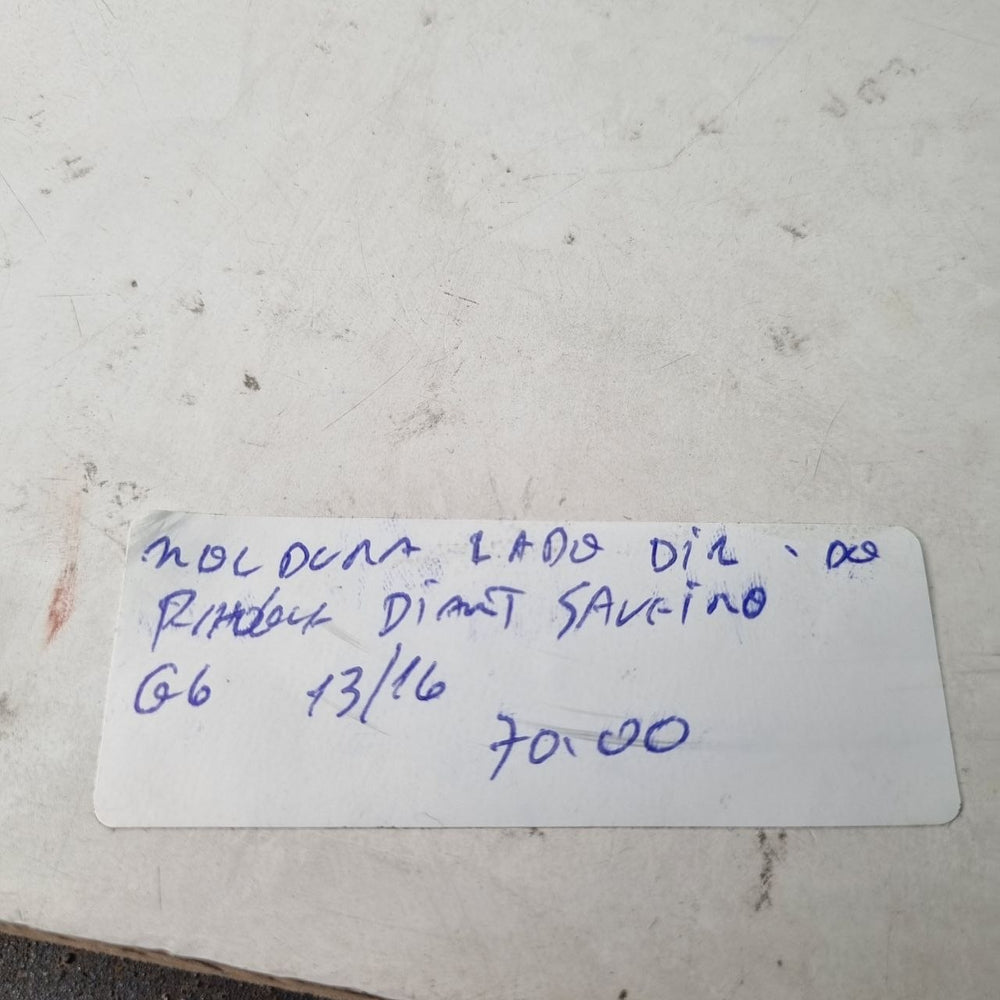 MOLDURA LADO DIR. DO
DIANT SAVEIRO
G6 13/16
70.00